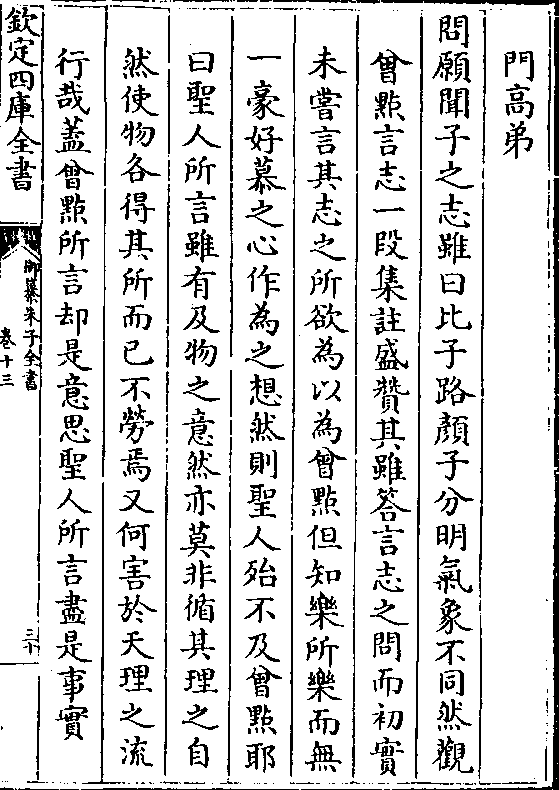 門高弟
問願聞子之志雖曰比子路顏子分明氣象不同然觀
曾㸃言志一段集註盛贊其雖答言志之問而初實
未嘗言其志之所欲為以為曾㸃但知樂所樂而無
一豪好慕之心作為之想然則聖人殆不及曾㸃耶
曰聖人所言雖有及物之意然亦莫非循其理之自
然使物各得其所而已不勞焉又何害於天理之流
行哉蓋曾㸃所言却是意思聖人所言盡是事實
欽定四庫全書
御纂朱子全書
卷十三
三十